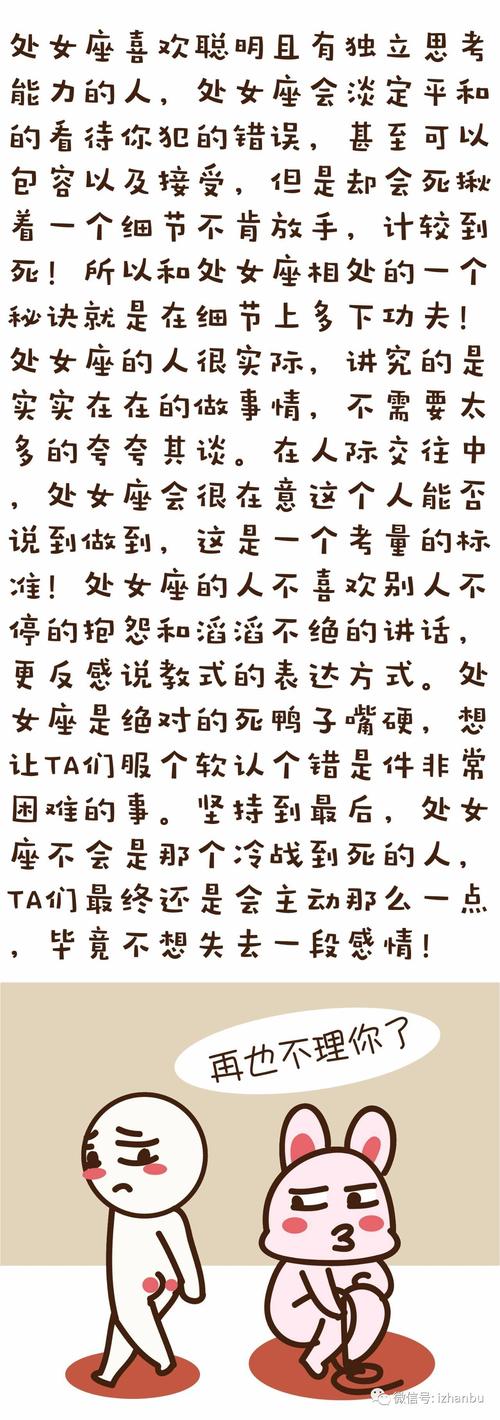 处女座喜欢聪明且有独立思考
能力的人，处女座会淡定平和
的看待你犯的错误，甚至可以
包容以及接受，但是却会死揪
着一个细节不肯放手，计较到
死！所以和处女座相处的一个
秘诀就是在细节上多下功夫！
处女座的人很实际，讲究的是
实实在在的做事情，不需要太
多的夸夸其谈。在人际交往中
，处女座会很在意这个人能否
说到做到，这是一个考量的标
准！处女座的人不喜欢别人不
停的抱怨和滔滔不绝的讲话，
更反感说教式的表达方式。处
女座是绝对的死鸭子嘴硬，想
让TA们服个软认个错是件非常
困难的事。坚持到最后，处女
座不会是那个冷战到死的人，
TA们最终还是会主动那么一点
，毕竟不想失去一段感情！
再也不理你了
微信号: izhanbu